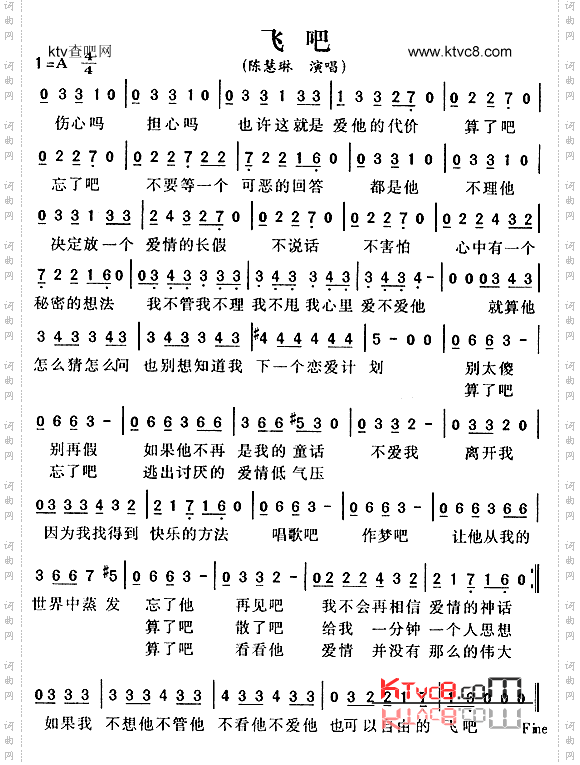 ktv查吧网
飞 吧
www.ktvc8.com
1=A 4/4
(陈慧琳 演唱)
0 3 3 1 0 | 0 3 3 1 0 | 0 3 3 0 3 1 | 1 3 3 2 7 0 | 0 2 2 7 0 |
伤心吗 担心吗 也许这就是 爱他的代价 算了吧
0 2 2 7 0 | 0 2 2 7 2 2 | 0 2 2 1 6 0 | 0 3 3 1 0 | 0 3 3 1 0 |
忘了吧 不要等一个 可恶的回答 都是他 不理他
0 3 3 1 3 3 | 2 4 3 2 7 0 | 0 2 2 7 0 | 0 2 2 7 0 | 0 2 2 4 3 2 |
决定放一个 爱情的长假 不说话 不害怕 心中有一个
7 2 2 1 6 0 | 0 3 4 3 3 3 4 3 | 3 3 4 3 3 3 4 3 | 3 3 4 3 4 - | 0 0 0 3 4 3 |
秘密的想法 我不管我不理 我不甩我心里 爱不爱他 就算他
3 4 3 3 4 3 | 3 4 3 3 4 3 3 | #4 4 4 4 4 4 | 5 - 0 0 | 0 6 6 3 - |
怎么猜怎么问 也别想知道我 下一个恋爱计 划 别太傻
算了吧
0 6 6 3 - | 0 6 6 3 6 6 | 3 6 6 #5 3 0 | 0 3 3 2 - | 0 3 3 2 0 |
别再假 如果他不再 是我的 童话 不爱我 离开我
忘了吧 逃出讨厌的 爱情低 气压
0 3 3 3 3 4 3 2 | 2 1 7 1 6 0 | 0 6 6 3 - | 0 6 6 3 - | 0 6 6 3 6 6 |
因为我找得到 快乐的方法 唱歌吧 作梦吧 让他从我的
3 6 6 7 #5 | 0 3 3 2 - | 0 3 3 2 - | 0 2 2 2 4 3 2 | 2 1 7 1 6 0 :||
世界中蒸 发 忘了他 再见吧 我不会再相信 爱情的神话
算了吧 散了吧 给我 一分钟 一个人思想
算了吧 看看他 爱情 并没有 那么的伟大
KTvc8.com
0 3 4 3 3 | 3 3 4 3 3 3 4 3 | 4 3 3 4 3 3 3 4 3 | 0 3 2 2 2
如果我 不想他不管他 不看他不爱他 也可以自由的 飞吧 Fine
词曲网